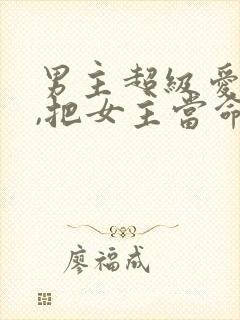 男主超級愛
,把女主當命
廖福成